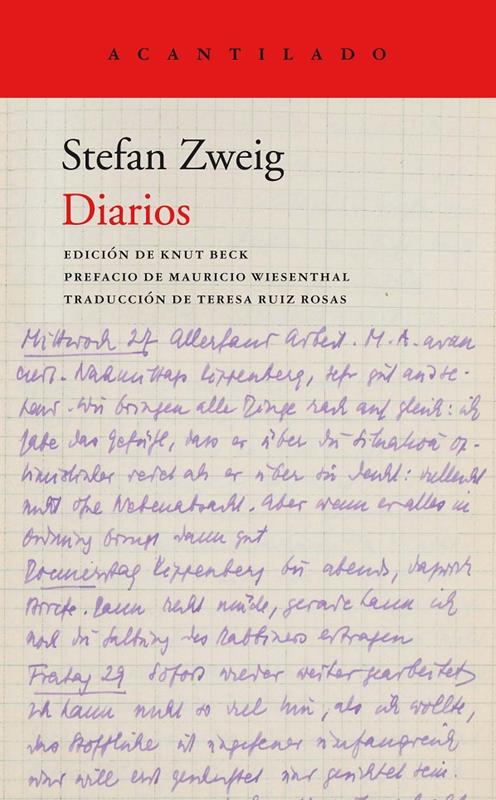 ACANTILADO
Stefan Zweig
Diarios
EDICIÓN DE KNUT BECK
PREFACIO DE MAURICIO WIESENTHAL
TRADUCCIÓN DE TERESA RUIZ ROSAS
Mittwoch 27 Allerhand Arbeit. M. A. avan
ciert. Nachmittags Kippenberg, sehr gut
Wir bringen alle Dinge rasch auf gleich: ich
habe das Gefühl, dass er über die Situation op-
timistischer redet als er über sie denkt: vielleicht
nicht ohne Nebenabsicht. Aber wenn er alles in
Ordnung bringt dann gut
Donnerstag Kippenberg bis abends,
Briefe. Dann recht müde, gerade kann ich
noch die Haltung des Rabbiners ertragen
Freitag 29 Sofort wieder weiter gearbeitet
ich kann nicht so viel tun, als ich wollte,
das Stoffliche ist ungeheuer umfangreich
und will erst und gesichtet sein.